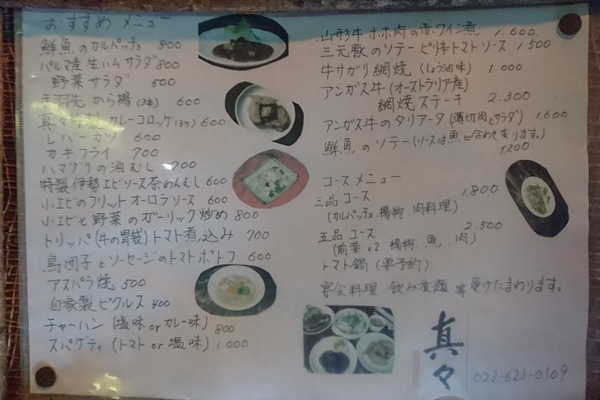 おすすめ メニュー
鮮魚のカルパッチョ 800
パルマ産生ハムサラダ 800
野菜サラダ 500
手羽先 から揚 600
カレーコロッケ 600
レバーカツ 600
カキフライ 700
ハマグリの酒むし 700
特製伊勢エビソース茶わんむし 600
小エビのフリットオーロラソース 600
小エビと野菜のガーリック炒め 800
トリッパ(牛の胃袋)トマト煮込み 700
鳥団子とソーセージのトマトポトフ 600
アスパラ焼 500
自家製ピクルス 400
チャーハン(塩味orカレー味) 800
スパゲティ(トマトor塩味) 1.000
山形牛ホホ肉の赤ワイン煮 1.600
三元豚のソテーピリ辛トマトソース 1500
牛サガリ網焼(しょう油味) 1.000
アンガス牛(オーストラリア産)
網焼ステーキ 2.300
アンガス牛のタリアータ(薄切肉とサラダ) 1.600
鮮魚のソテー(ソースは魚に合わせ変ります。)
1200
コースメニュー
三品コース 1.800
(カルパッチョ、揚物、肉料理)
五品コース 2.500
(前菜×2 揚物、魚、肉)
トマト鍋(要予約)
宴会料理 飲み放題 等受けたまわります。
真々
023-623-0109